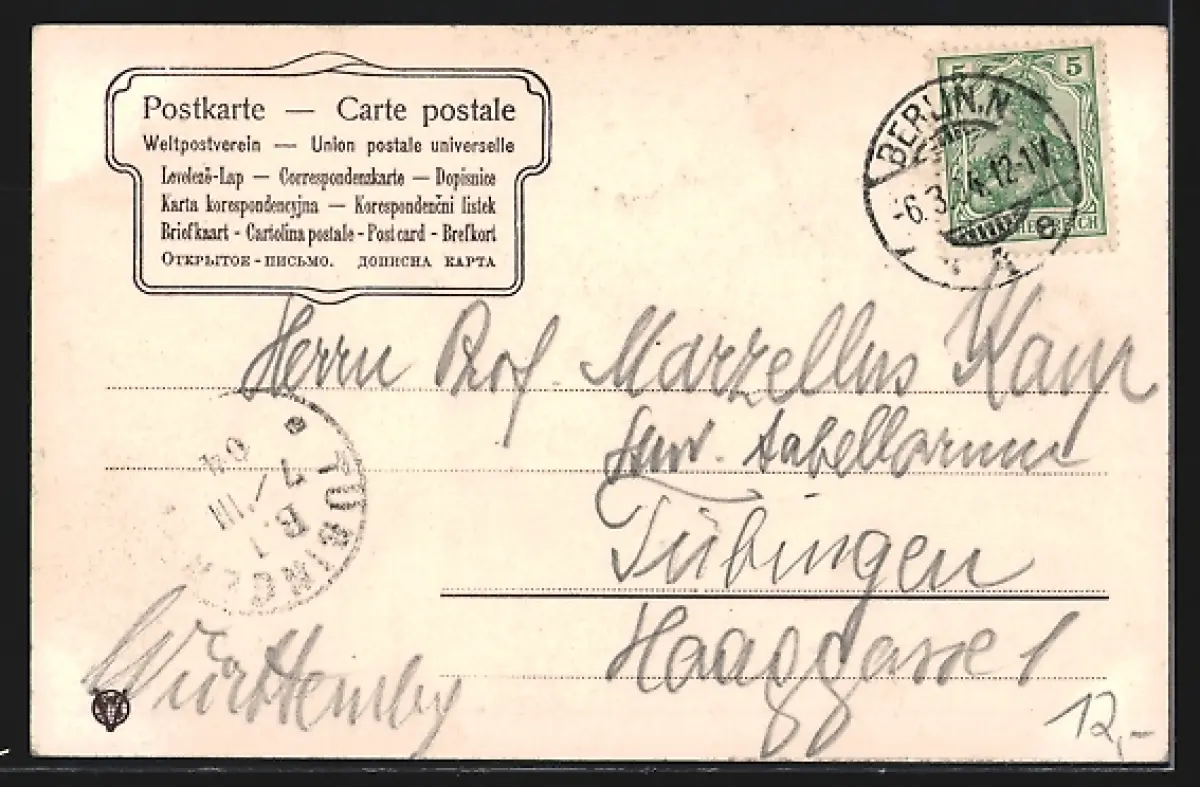 Postkarte — Carte postale
Weltpostverein — Union postale universelle
Levelező-Lap — Correspondenzkarte — Dopisnice
Karta korespondencyjna — Korespondenčni listek
Briefkaart - Cartolina postale - Post card - Brefkort
Открытое - письмо. дописна карта
5 5
BERLIN. N.
-6.3. 4. 12-1V.
HES REICH
e
Herrn Prof. Marzellus
stabellarum
Tübingen
Haaggasse 1
Württembg
TÜBINGEN
1 B.
7/III
04
12,-